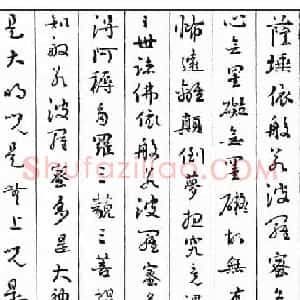 薩埵依般若波羅蜜
心无罣礙无罣礙故無有
怖遠離顛倒夢想究竟
三世諸佛依般若波羅蜜多
得阿耨多羅三藐三菩提
知般若波羅蜜多是大神
是大明咒是無上咒是